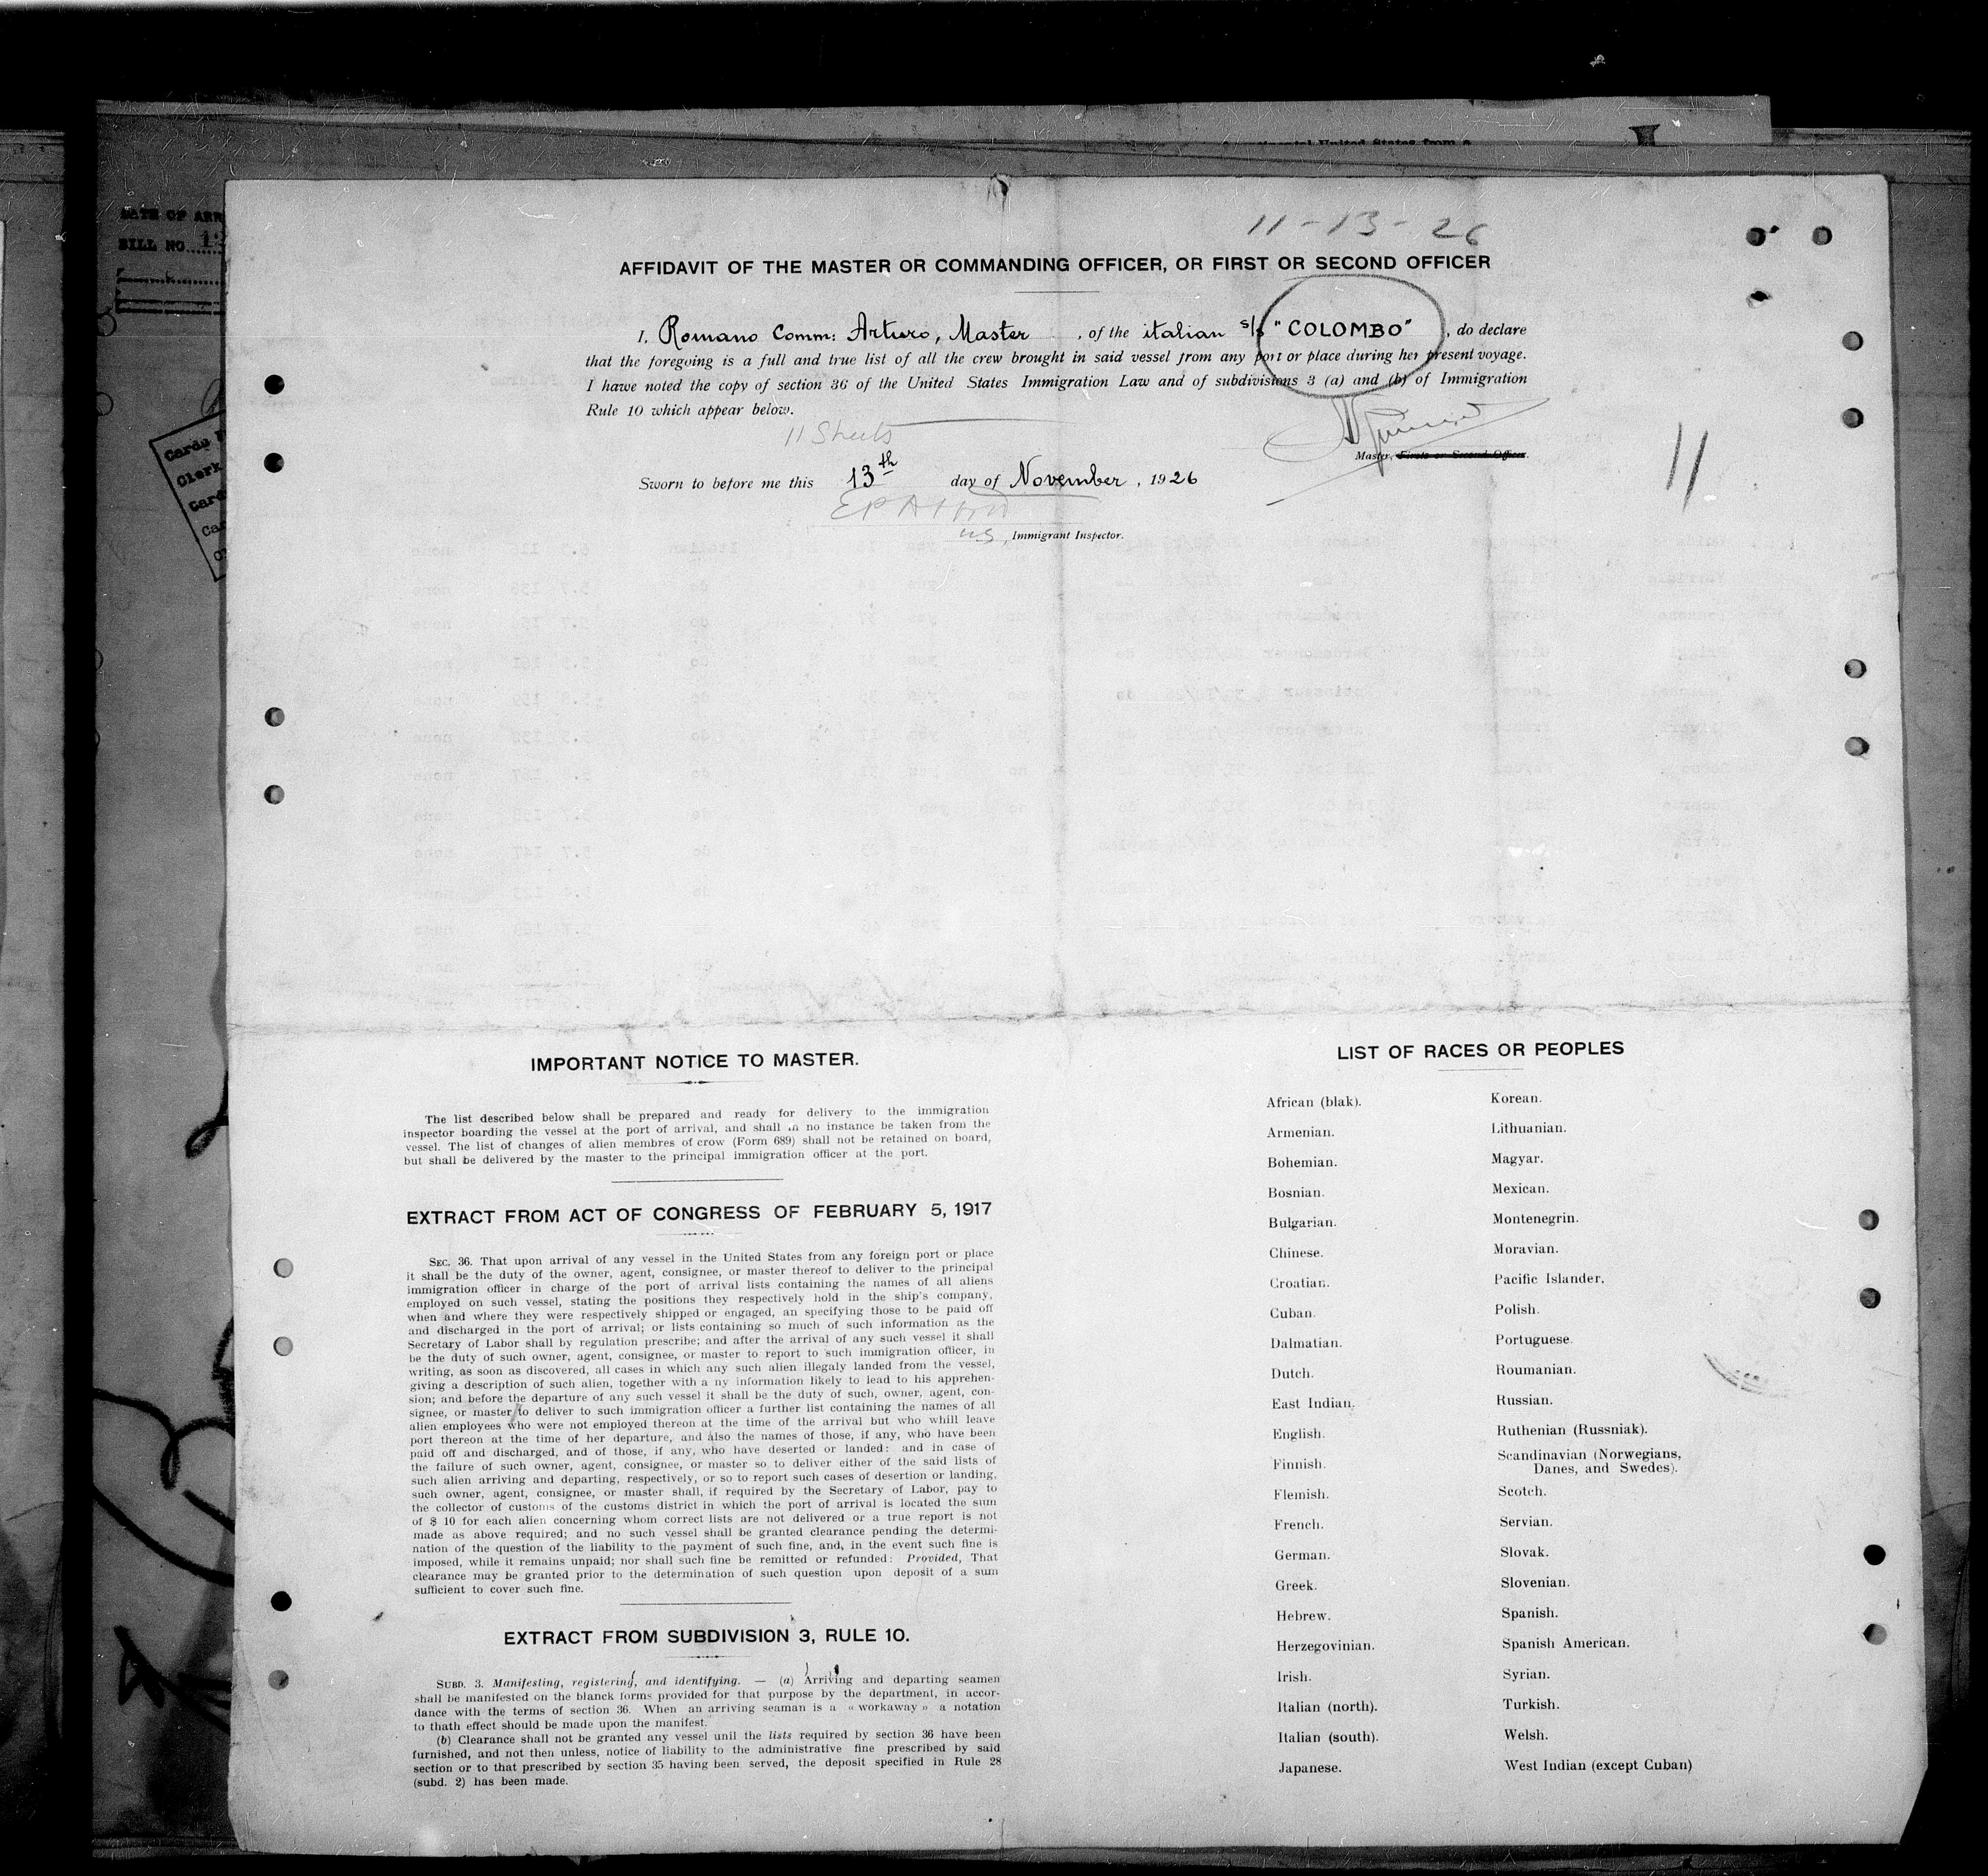 11-13-26
AFFIDAVIT OF THE MASTER OR COMMANDING OFFICER, OR FIRST OR SECOND OFFICER
I, Romano Comm: Arturo, Master , of the italian s/s "COLOMBO" , do declare
that the foregoing is a full and true list of all the crew brought in said vessel from any port or place during her present voyage.
I hawe noted the copy of section 36 of the United States Immigration Law and of subdivisions 3 (a) and (b) of Immigration
Rule 10 which appear below.
11 Sheets
Master, Firsts or Second Officer.
11
Sworn to before me this 13th day of November, 1926
US, Immigrant Inspector.
DATE OF ARR
BILL NO.
Clerk
IMPORTANT NOTICE TO MASTER.
The list described below shall be prepared and ready for delivery to the immigration
inspector boarding the vessel at the port of arrival, and shall in no instance be taken from the
vessel. The list of changes of alien membres of crow (Form 689) shall not be retained on board,
but shall be delivered by the master to the principal immigration officer at the port.
EXTRACT FROM ACT OF CONGRESS OF FEBRUARY 5, 1917
SEC. 36. That upon arrival of any vessel in the United States from any foreign port or place
it shall be the duty of the owner, agent, consignee, or master thereof to deliver to the principal
immigration officer in charge of the port of arrival lists containing the names of all aliens
employed on such vessel, stating the positions they respectively hold in the ship's company,
when and where they were respectively shipped or engaged, an specifying those to be paid off
and discharged in the port of arrival; or lists containing so much of such information as the
Secretary of Labor shall by regulation prescribe; and after the arrival of any such vessel it shall
be the duty of such owner, agent, consignee, or master to report to such immigration officer, in
writing, as soon as discovered, all cases in which any such alien illegaly landed from the vessel,
giving a description of such alien, together with a ny information likely to lead to his apprehen-
sion; and before the departure of any such vessel it shall be the duty of such, owner, agent, con-
signee, or master to deliver to such immigration officer a further list containing the names of all
alien employees who were not employed thereon at the time of the arrival but who whill leave
port thereon at the time of her departure, and also the names of those, if any, who have been
paid off and discharged, and of those, if any, who have deserted or landed: and in case of
the failure of such owner, agent, consignee, or master so to deliver either of the said lists of
such alien arriving and departing, respectively, or so to report such cases of desertion or landing,
such owner, agent, consignee, or master shall, if required by the Secretary of Labor, pay to
the collector of customs of the customs district in which the port of arrival is located the sum
of $ 10 for each alien concerning whom correct lists are not delivered or a true report is not
made as above required; and no such vessel shall be granted clearance pending the determi-
nation of the question of the liability to the payment of such fine, and, in the event such fine is
imposed, while it remains unpaid; nor shall such fine be remitted or refunded: Provided, That
clearance may be granted prior to the determination of such question upon deposit of a sum
sufficient to cover such fine.
EXTRACT FROM SUBDIVISION 3, RULE 10.
SUBD. 3. Manifesting, registering, and identifying. — (a) Arriving and departing seamen
shall be manifested on the blanck forms provided for that purpose by the department, in accor-
dance with the terms of section 36. When an arriving seaman is a « workaway » a notation
to thath effect should be made upon the manifest.
(b) Clearance shall not be granted any vessel unil the lists required by section 36 have been
furnished, and not then unless, notice of liability to the administrative fine prescribed by said
section or to that prescribed by section 35 having been served, the deposit specified in Rule 28
(subd. 2) has been made.
LIST OF RACES OR PEOPLES
African (blak).
Armenian.
Bohemian.
Bosnian.
Bulgarian.
Chinese.
Croatian.
Cuban.
Dalmatian.
Dutch.
East Indian.
English.
Finnish.
Flemish.
French.
German.
Greek.
Hebrew.
Herzegovinian.
Irish.
Italian (north).
Italian (south).
Japanese.
Korean.
Lithuanian.
Magyar.
Mexican.
Montenegrin.
Moravian.
Pacific Islander.
Polish.
Portuguese.
Roumanian.
Russian.
Ruthenian (Russniak).
Scandinavian (Norwegians,
Danes, and Swedes).
Scotch.
Servian.
Slovak.
Slovenian.
Spanish.
Spanish American.
Syrian.
Turkish.
Welsh.
West Indian (except Cuban)